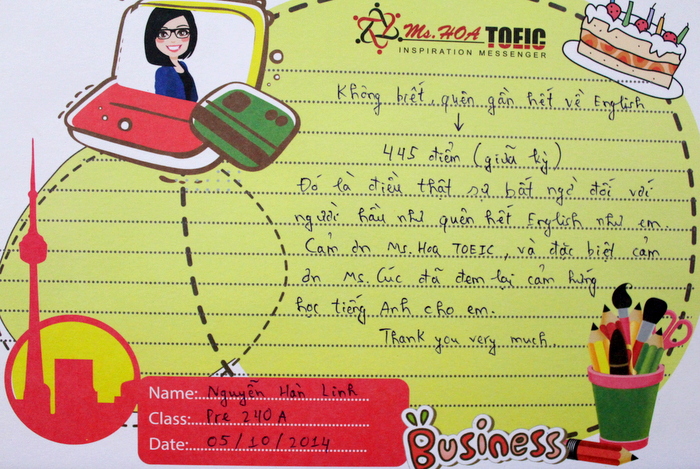 Ms. HOA TOEIC
INSPIRATION MESSENGER
Không biết, quên gần hết về English
↓
445 điểm (giữa kỳ)
Đó là điều thật sự bất ngờ đối với
người hầu như quên hết English như em.
Cảm ơn Ms. Hoa TOEIC, và đặc biệt cảm
ơn Ms. Cúc đã đem lại cảm hứng
học tiếng Anh cho em.
Thank you very much.
Name: Nguyễn Hàn Linh
Class: Pre 240 A
Date: 05/10/2014
Business